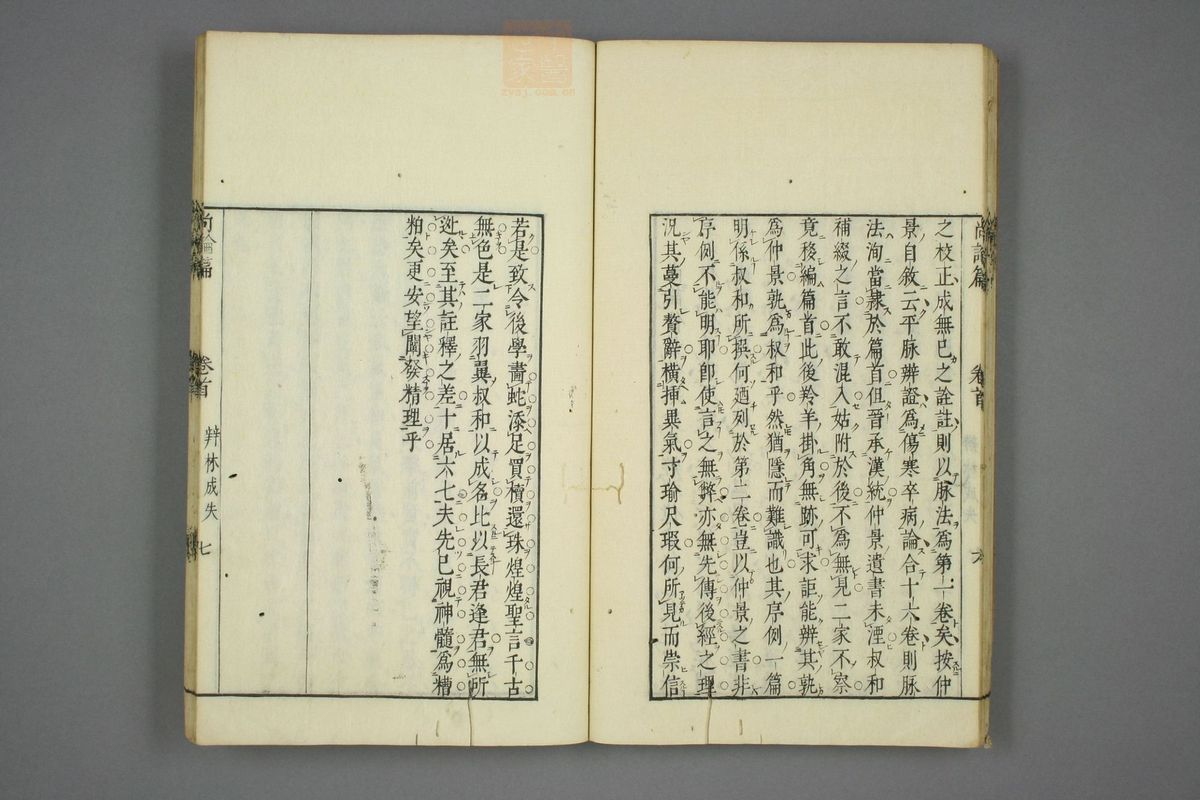 之校正成無已之詮註則以脉法爲第一卷矣按仲
景自敘云平脉辨證爲傷寒卒病論合十六卷則脉
法洵當隷於篇首但晉承漢統仲景遺書未湮叔和
補綴之言不敢混入姑附於後不爲無見二家不察
竟移編篇首此後羚羊掛角無跡可求詎能辨其孰
爲仲景孰爲叔和乎然猶隱而難識也其序例一篇
明係叔和所撰何廼列於第二卷豈以仲景之書非
序例不能明耶即使言之無弊亦無先傳後經之理
況其蔓引贅辭橫挿異氣寸瑜尺瑕何所見而崇信
尚論篇
卷首
六
若是致令後學畵蛇添足買櫝還珠煌煌聖言千古
無色是二家羽翼叔和以成名比以長君逢君無所
迯矣至其註釋之差十居六七夫先已視神髓爲糟
粕矣更安望闡發精理乎
尚論篇
卷首
辨林成失
七
zysj.com.cn